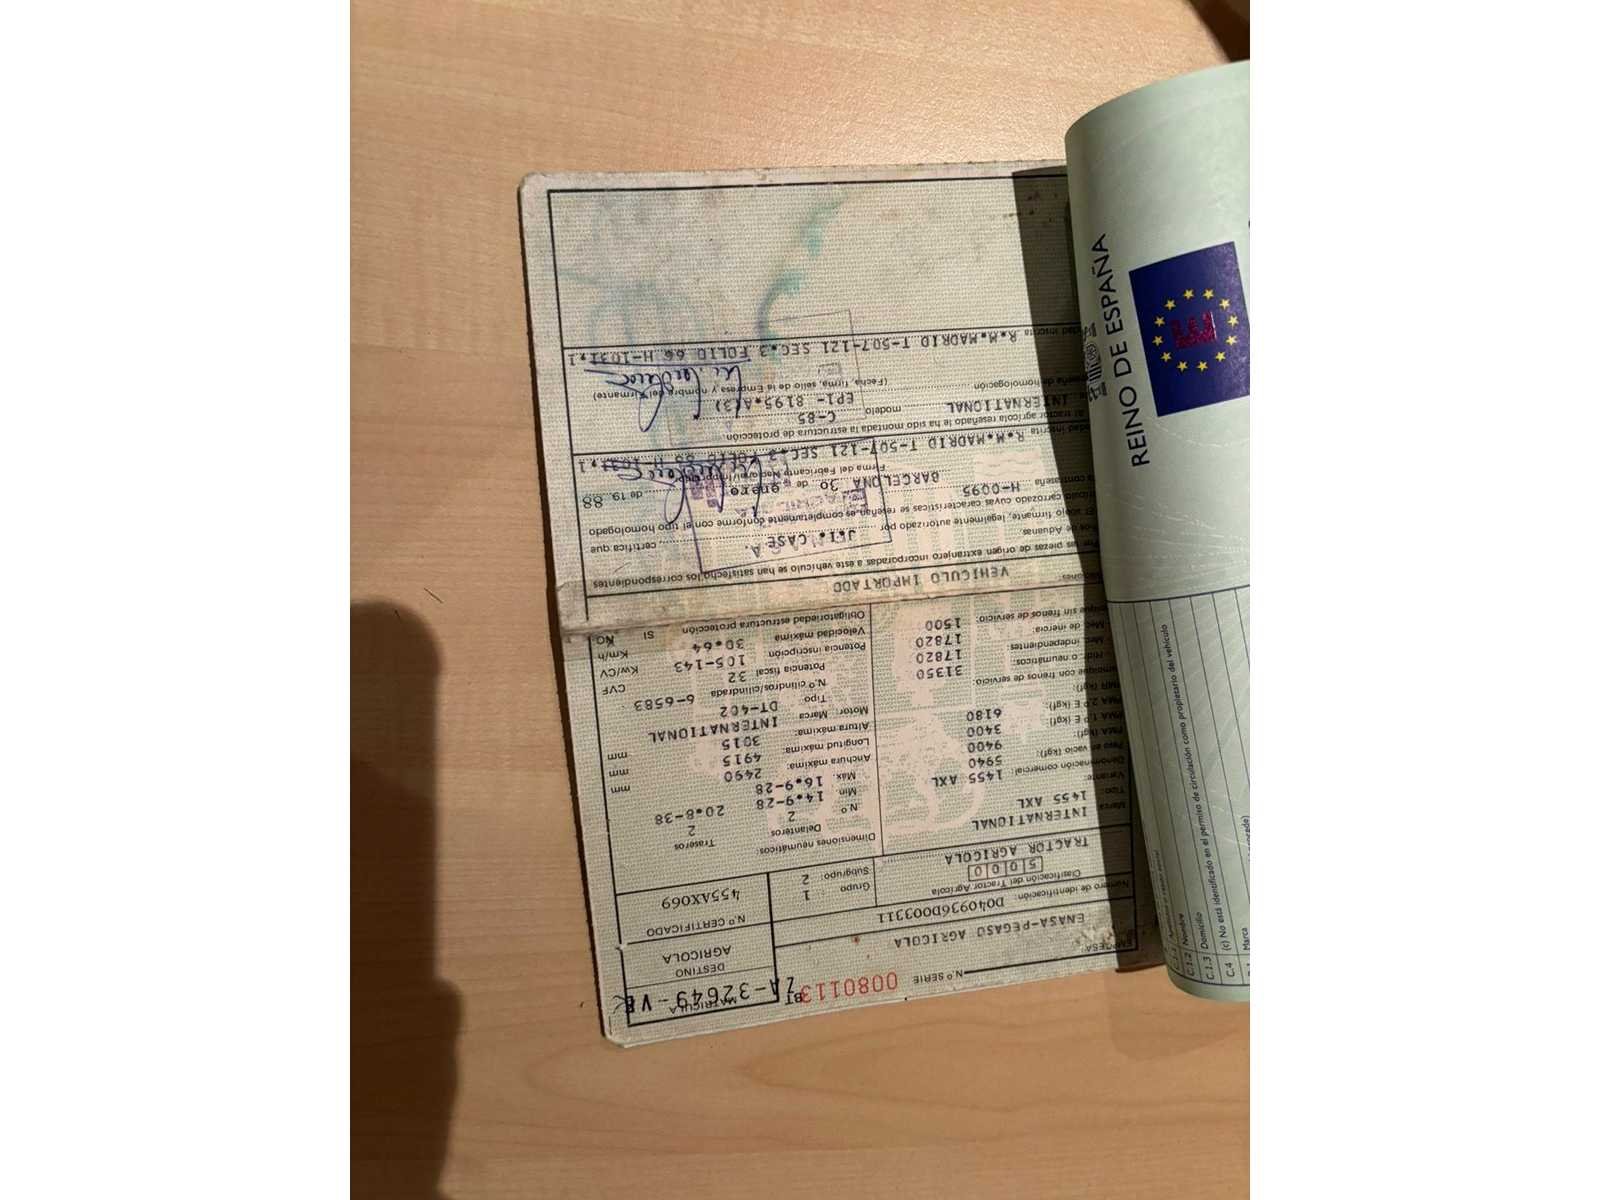 Nº SERIE 0080113
MATRICULA
ZA-32649-VE
EMPRESA:
ENASA-PEGASO AGRICOLA
DESTINO
AGRICOLA
Número de identificación: D040936D003311
Nº CERTIFICADO
455AX069
Clasificación del Tractor Agrícola
5000
TRACTOR AGRICOLA
Grupo 1
Subgrupo: 2
Marca INTERNATIONAL
Tipo: 1455 AXL
Variante:
Denominación comercial: 1455 AXL
Peso en vacío (kgf): 5940
PMA (kgf): 9400
PMA 1.º E (kgf): 3400
PMA 2.º E (kgf): 6180
PMR (kgf):
Remolque con frenos de servicio:
- Hidr. o neumáticos: 31350
- Mec. independientes: 17820
- Mec. de inercia: 17820
sin frenos de servicio: 1500
Dimensiones neumáticos:
Delanteros Traseros
N.º 2 2
Mín. 14.9-28 20.8-38
Máx. 16.9-28
Anchura máxima: 2490 mm
Longitud máxima: 4915 mm
Altura máxima: 3015 mm
Motor: Marca INTERNATIONAL
Tipo DT-402
N.º cilindros/cilindrada 6-6583
Potencia fiscal 32 CVF
Potencia inscripción 105-143 Kw/CV
Velocidad máxima 30.64 Km/h
Obligatoriedad estructura protección SI NO
VEHICULO IMPORTADO
Por las piezas de origen extranjero incorporadas a este vehículo se han satisfecho los correspondientes
de Aduanas
El abajo firmante, legalmente autorizado por J.I. CASE A. certifica que
carrozado cuyas características se reseñan, es completamente conforme con el tipo homologado
contraseña H-0095
BARCELONA 30 de enero de 19 88
Firma del Fabricante Nacional
inscrita R.M.MADRID T-507-121 SEC.3 FOLIO 66 H-1031,1
Al tractor agrícola reseñado le ha sido montada la estructura de protección
INTERNATIONAL modelo C-85
de homologación EP1- 8195.A(3)
(Fecha, firma, sello de la Empresa y nombre del Firmante)
inscrita R.M.MADRID T-507-121 SEC.3 FOLIO 66 H-1031,1
REINO DE ESPAÑA
C.1.2 Nombre
C.1.3 Domicilio
C.4 (c) No está identificado en el permiso de circulación como propietario del vehículo
Marca